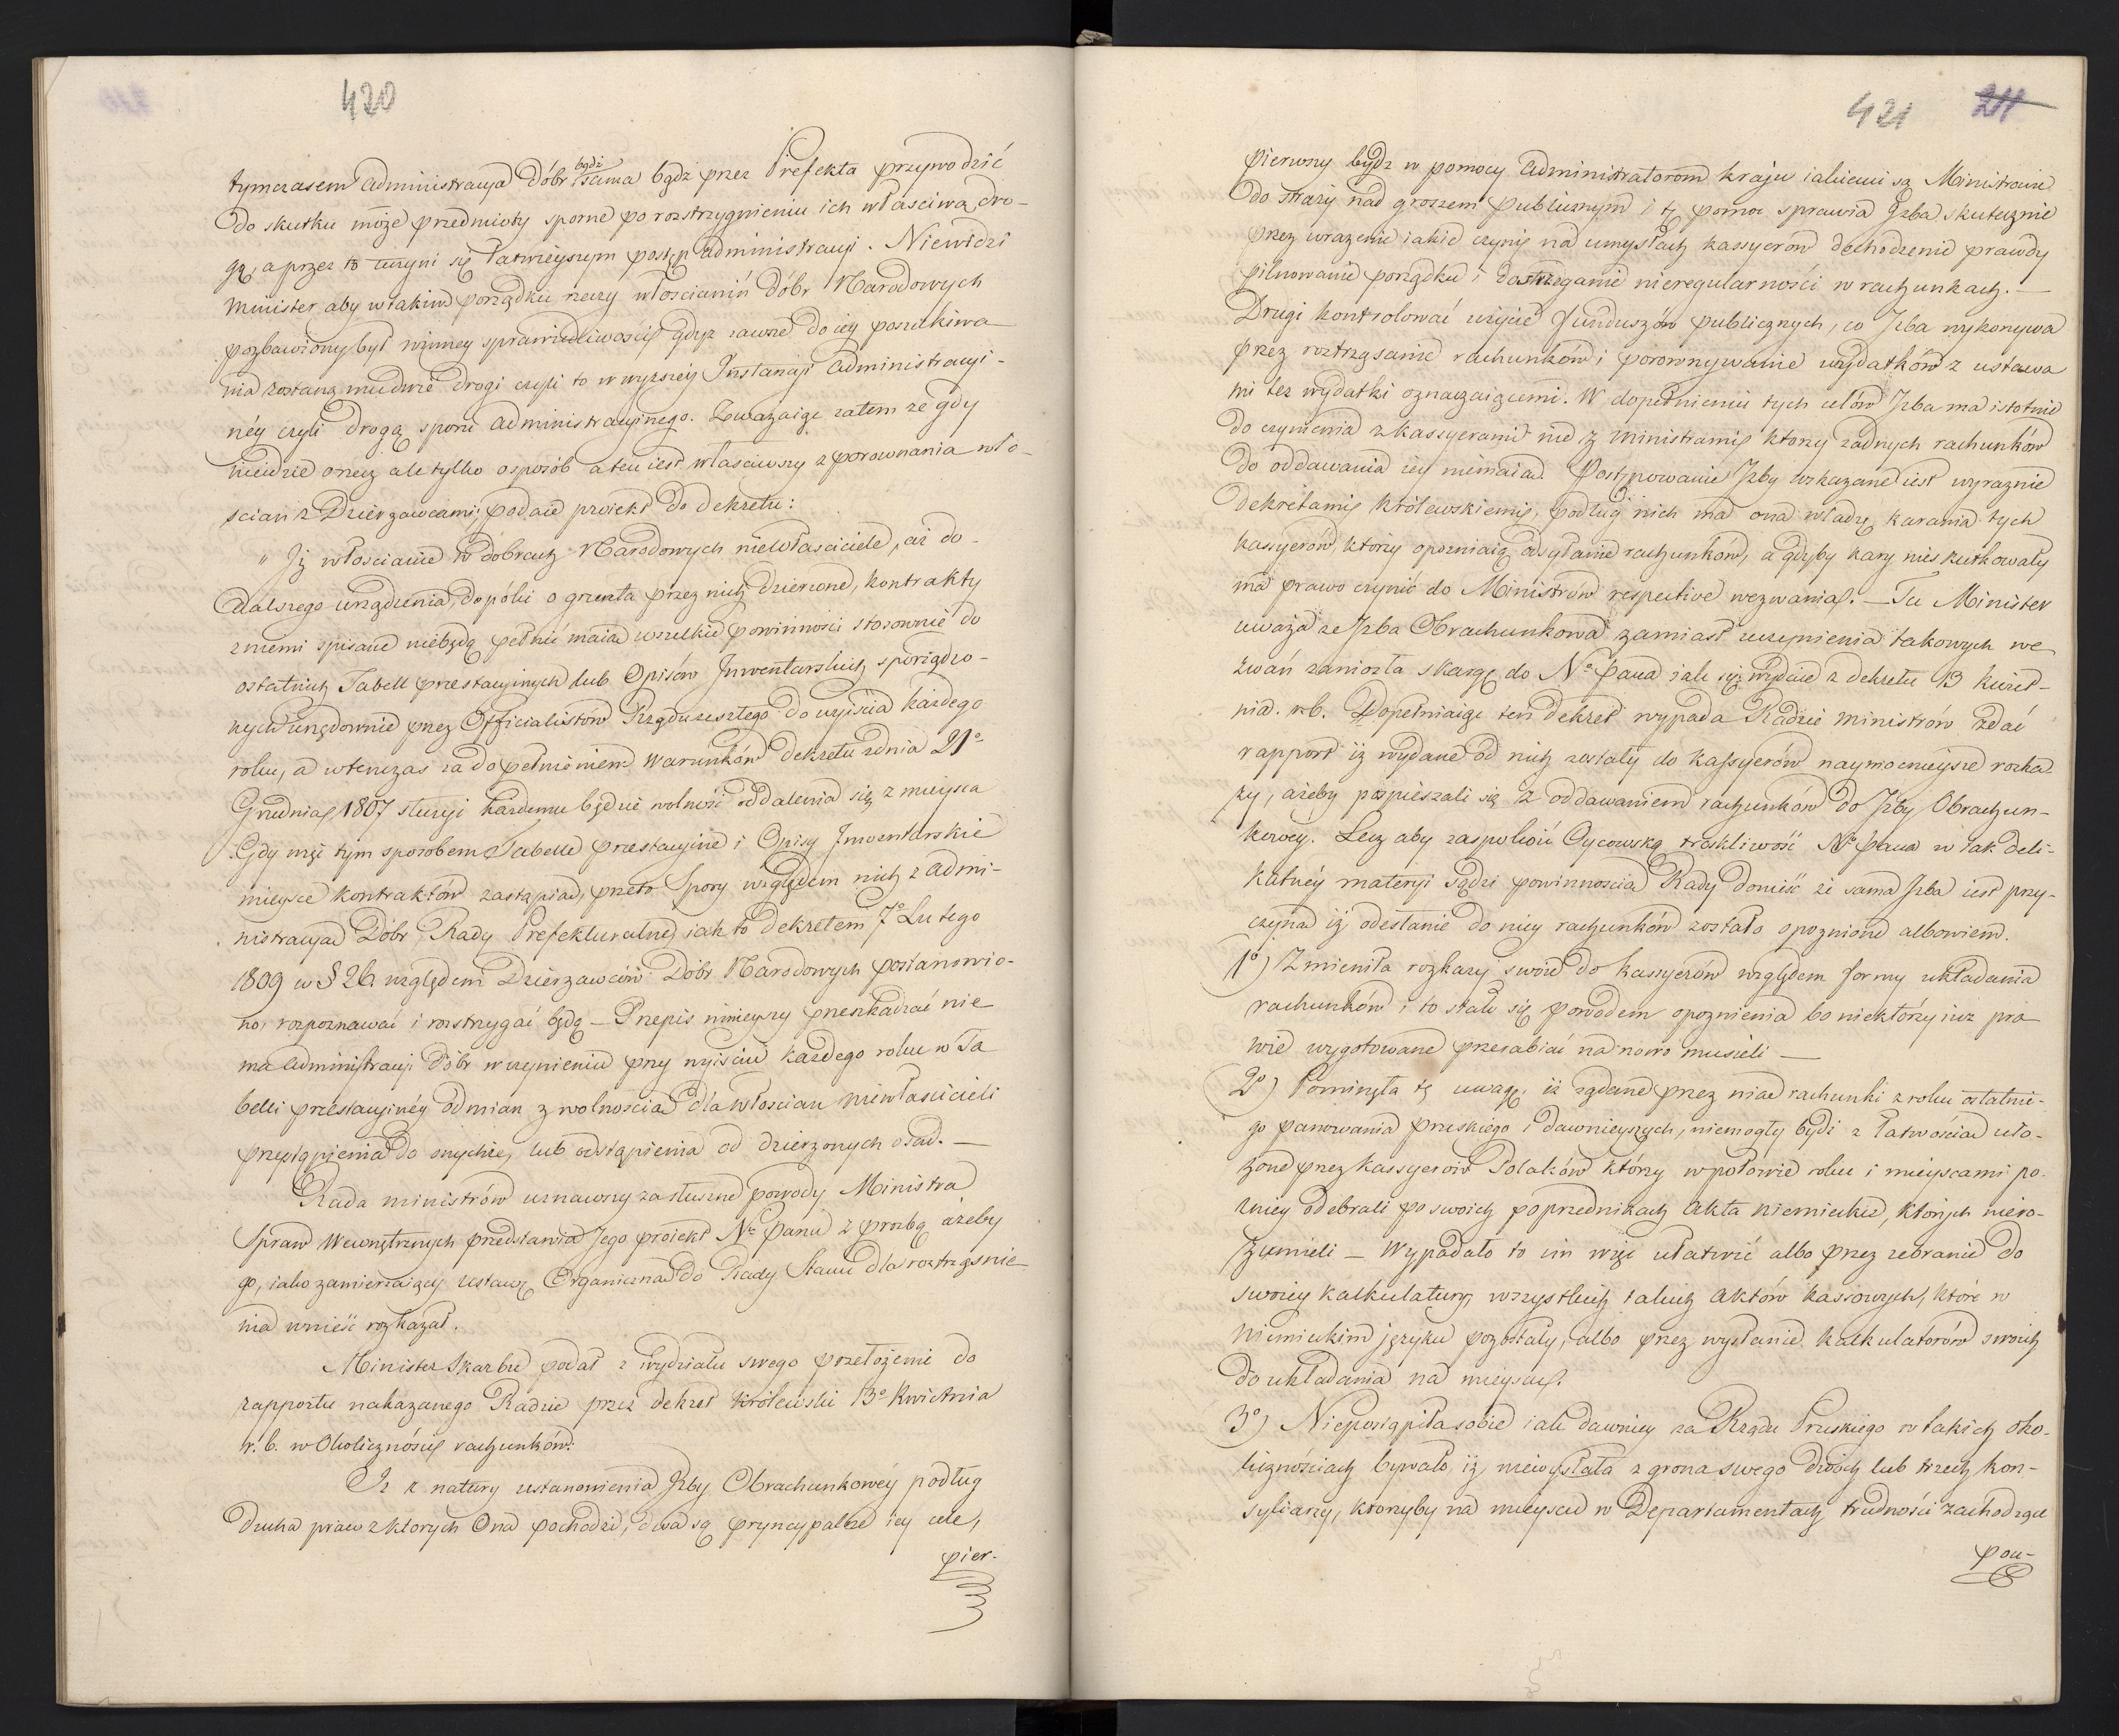 420
tymczasem administracya Dóbr bądź sama bądź przez Prefekta przywodzić
do skutku może przedmioty sporne po rozstrzygnieniu ich właściwą dro-
gą, a przez to uczyni się łatwieyszym postęp administracyi. Niewidzi
Minister aby w takim porządku rzeczy włościanin Dóbr Narodowych
pozbawiony był winney sprawiedliwości gdyż zawsze do iey poszukiwa
nia zostaną mu dwie drogi czyli to w wyższey Instancyi administracyi-
néy czyli drogą sporu administracyinego. Zważaiąc zatem że gdy
nieidzie o rzecz ale tylko o sposób a ten iest właściwszy z porownania wło-
scian z Dzierzawcami, podaie proiekt do dekretu:
" Iż włościanie w dobrach Narodowych niewłaściciele, aż do
dalszego urządzenia, dopóki o grunta przez nich dzierzone, kontrakty
z niemi spisane niebędą pełnić maią wszelkie powinności stosownie do
ostatnich Tabell prestacyinych lub Opisów Inwentarskich sporządzo-
nych urzędownie przez Officialistów Rządu zeszłego do wyiścia każdego
roku, a wtenczas za dopełnieniem warunków dekretu z dnia 21o
Grudnia 1807 służyć każdemu będzie wolność oddalenia się z mieysca
Gdy więc tym sposobem Tabelle prestacyine i Opisy Inwentarskie
mieysce kontraktów zastąpią, przeto Spory względem nich z admi-
nistracyą Dóbr, Rady Prefekturalne, iak to dekretem 7o Lutego
1809 w § 26 względem Dzierzawców Dóbr Narodowych postanowio-
no, rozpoznawać i rozstrzygać będą — Przepis ninieyszy przeszkadzać nie
ma administracyi Dóbr w uczynieniu przy wyiściu każdego roku w Ta
belli prestacyinéy odmian, z wolnością dla włościan niewłaścicieli
przystąpienia do onychże, lub odstąpienia od dzierzonych osad. —
Rada ministrów uznawszy za słuszne powody Ministra
Spraw Wewnętrznych przedstawia Jego proiekt Nu Panu z prozbą ażeby
go, iako zamierzaiący ustawę Organiczną do Rady Stanu dla roztrząśnie
nia wnieść rozkazał.
Minister Skarbu podał z wydziału swego przełożenie do
rapportu nakazanego Radzie przez dekret królewski 13o Kwietnia
r. b. w Okoliczności rachunków:
Iż z natury ustanowienia Izby Obrachunkowéy podług
ducha praw z których Ona pochodzi, dwa są pryncypalne iey cele,
pier-
421 211
pierwszy bydź w pomocy administratorom kraju iakiemi są Ministrowie
do straży nad groszem publicznym i tę pomoc sprawia Izba skutecznie
przez wrażenie iakie czyni na umysłach kassyerów dochodzenie prawdy
pilnowanie porządku i dostrzeganie nieregularności w rachunkach. —
Drugi kontrolować użycie funduszów publicznych, co Izba wykonywa
przez roztrząsanie rachunków i porownywanie wydatków z ustawa
mi też wydatki oznaczaiącemi. W dopełnieniu tych celów Izba ma istotnie
do czynienia z kassyerami nie z ministrami którzy żadnych rachunków
do oddawania iey niemaią. Postępowanie Izby wskazane iest wyraznie
dekretami królewskiemi, podług nich ma ona władzę karania tych
kassyerów, którzy opozniaią odsyłanie rachunków, a gdyby kary nieskutkowały
ma prawo czynić do Ministrów respective wezwania. — Tu Minister
uważa że Izba Obrachunkowa zamiast uczynienia takowych we
zwań zaniosła skargę do No Pana iak się wydaie z dekretu 13 kwiet-
nia. r.b. Dopełniaiąc ten dekret wypada Radzie ministrów zdać
rapport iż wydane od nich zostały do kassyerów naymocnieysze rozka
zy, ażeby pospieszali się z oddawaniem rachunków do Izby Obrachun-
kowey. Lecz aby zaspokoić Oycowską troskliwość No Pana w tak deli-
katnéy materyi sądzi powinnością Rady donieść że sama Izba iest przy-
czyną iż odesłanie do niey rachunków zostało opoznione albowiem.
1o) Zmieniła rozkazy swoie do kassyerów względem formy układania
rachunków i to stało się powodem opoznienia bo niektórzy iuż pra
wie wygotowane przerabiać na nowo musieli —
2o) Pominęła tę uwagę, iż żądane przez nią rachunki z roku ostatnie-
go panowania pruskiego i dawnieyszych, niemogły bydź z łatwością uło-
żone przez kassyerów Polaków którzy w połowie roku i mieyscami po-
zniey odebrali po swoich poprzednikach Akta niemieckie, których niero-
zumieli — Wypadało to im więc ułatwić albo przez zebranie do
swoiey kalkulatury wszystkich takich aktów kassowych, które w
niemieckim języku pozostały, albo przez wysłanie kalkulatorów swoich
do układania na mieyscu.
3o) Niepostąpiła sobie iak dawniey za Rządu Pruskiego w takich oko-
licznościach bywało, iż niewysłała z grona swego dwóch lub trzech kon-
syliarzy, którzyby na mieyscu w Departamentach trudności zachodzące
pou-